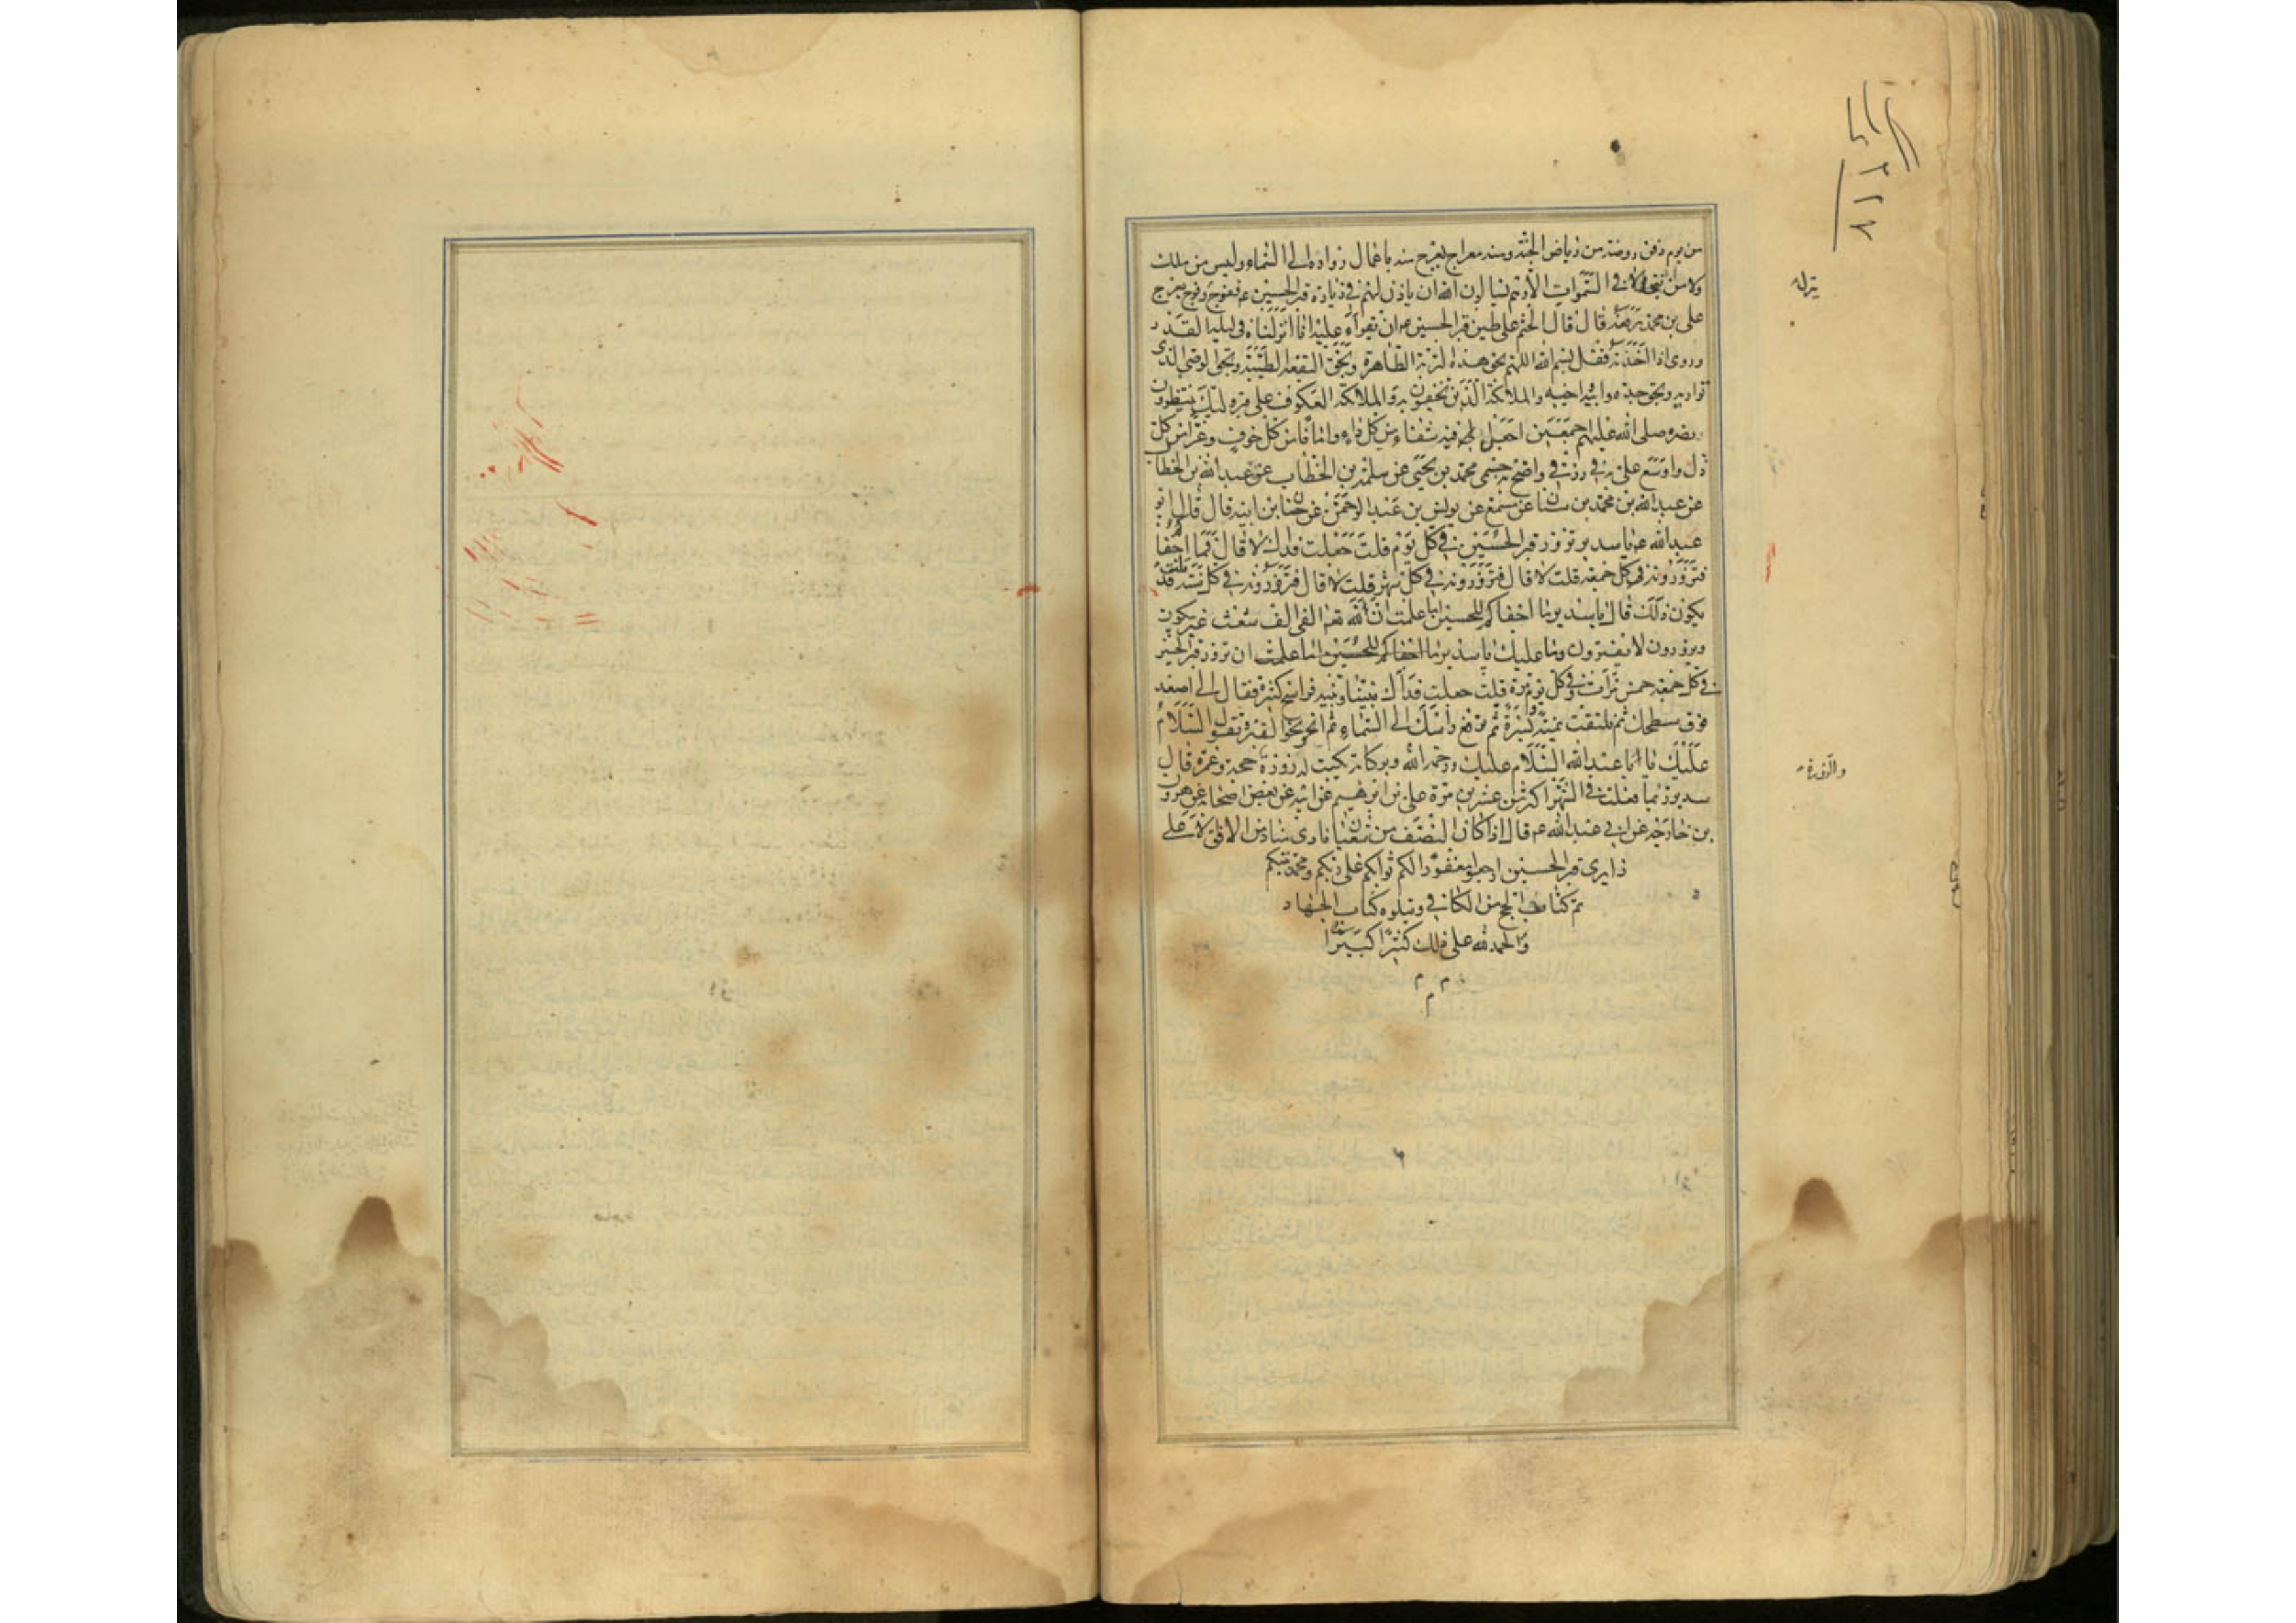 من يوم دفن روضة من رياض الجنة ومنه معراج يعرج منه باعمال زواره الى السماء وليس من ملك
ولا من نبي في السموات الا وهم يسالون الله ان ياذن لهم في زيارة قبر الحسين ع ففوج ينزل وفوج يعرج
على بن محمد رفعه قال قال الختم على طين قبر الحسين ع ان يقرأ عليه انا انزلناه في ليلة القدر
وروى اذا اخذته فقل بسم الله اللهم بحق هذه التربة الطاهرة وبحق البقعة الطيبة وبحق الوصى الذى
تواريه وبحق جده وابيه واخيه والملائكة الذين يحفون به والملائكة العكوف على قبره ليك ينتظرون
نصره صلى الله عليهم اجمعين اجعل لى فيه شفاء من كل داء وامانا من كل خوف وعزا من كل
ذل واوسع على به في رزقى واصح به جسمى محمد بن يحيى عن سلمة بن الخطاب عن عبد الله بن الخطاب
عن عبد الله بن محمد بن سنان عن مسمع عن يونس بن عبد الرحمن عن حنان عن ابيه قال قال ابو
عبد الله ع يا سدير تزور قبر الحسين في كل يوم قلت جعلت فداك لا قال فما اجفاكم
فتزورونه في كل جمعة قلت لا قال فتزورونه في كل شهر قلت لا قال فتزورونه في كل سنة قلت قد
يكون ذلك قال يا سدير ما اجفاكم للحسين اما علمت ان لله تعه الفى الف شعث غبر يبكون
ويزورون لا يفترون وما عليك يا سدير ما اجفاكم للحسين اما علمت ان تزور قبر الحسين
في كل جمعة خمس مرات وفي كل يوم مرة قلت جعلت فداك بيننا وبينه فراسخ كثيرة فقال الى اصعد
فوق سطحك ثم تلتفت يمنة ويسرة ثم ترفع راسك الى السماء ثم انحو نحو القبر وتقول السلام
عليك يا ابا عبد الله السلام عليك ورحمة الله وبركاته يكتب له زورة حجة وعمرة قال
سدير وربما فعلت في الشهر اكثر من عشرين مرة على بن ابرهيم عن ابيه عن بعض اصحابه عن هرون
بن خارجة عن ابى عبد الله ع قال اذا كان النصف من شعبان نادى مناد من الافق الاعلى
زايرى قبر الحسين ارجعوا مغفورا لكم ثوابكم على ربكم ومحمد نبيكم
تم كتاب الحج من الكافى ويتلوه كتاب الجهاد
والحمد لله على ذلك كثيرا كبيرا
م م
م
ينزل
والزورة